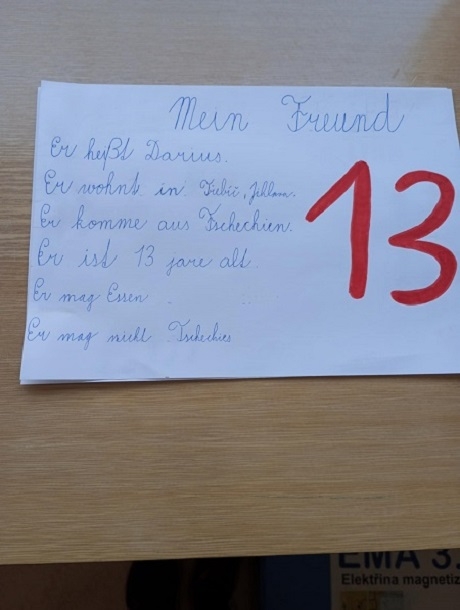 Mein Freund
Er heißt Darius.
Er wohnt in Třebíč, Jihlava.
Er komme aus Tschechien.
Er ist 13 jare alt.
Er mag Essen
Er mag nicht Tschechies
13
EMA 3.
Elektřina magnetiz